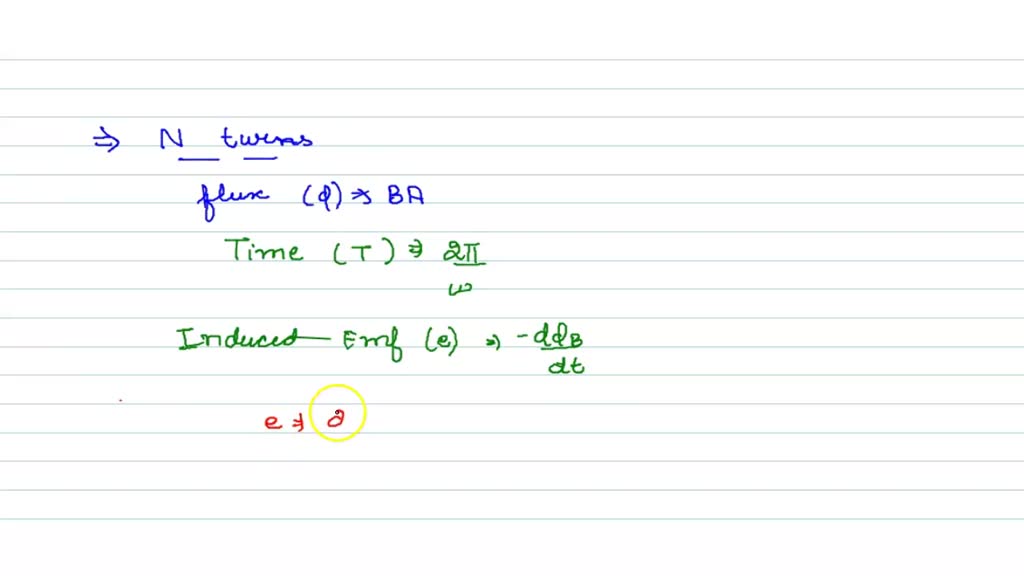 ⇒ N turns
flux (φ) ⇒ BA
Time (T) ⇒ 2π/ω
Induced Emf (e) ⇒ -dφB/dt
e ⇒ 2